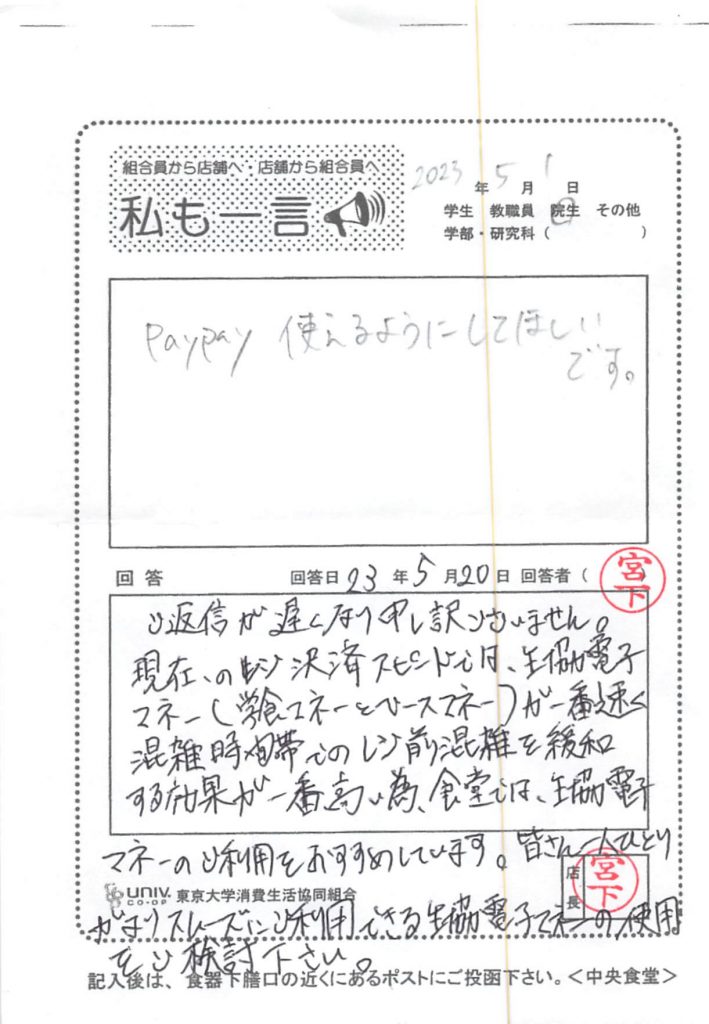 組合員から店舗へ・店舗から組合員へ
私も一言
2023年5月1日
学生 教職員 院生 その他
学部・研究科( )
PayPay 使えるようにしてほしい
です。
回答 回答日23年5月20日 回答者(宮下
ご返信が遅くなり申し訳ございません。
現在、のレジ決済スピードでは、生協電子
マネー(学食マネーとユースマネー)が一番速く
混雑時間帯でのレジ前混雑を緩和
する効果が一番高い為、食堂では、生協電子
マネーのご利用をおすすめしています。皆さん一人ひとり
店長 宮下
UNIV. CO-OP 東京大学消費生活協同組合
がよりスムーズにご利用できる生協電子マネーの使用
をご検討下さい。
記入後は、食器下膳口の近くにあるポストにご投函下さい。<中央食堂>